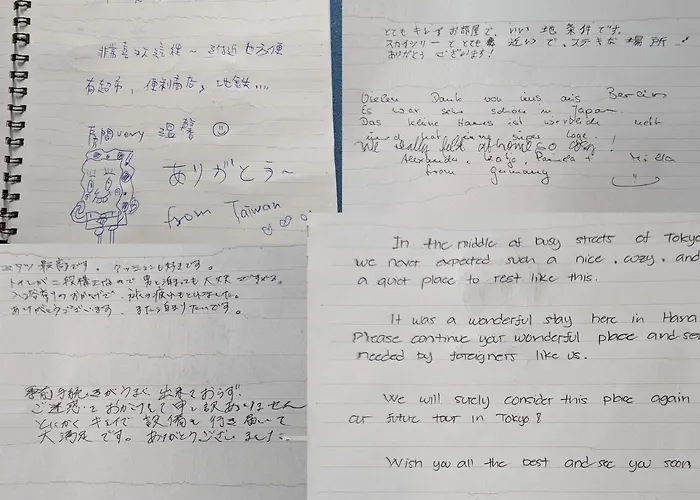 非常喜欢這裡～ 附近也方便
有超市，便利商店，地鐵....
房間very 溫馨
ありがとう～
from Taiwan
とてもキレイなお部屋で、いい地条件です。
スカイツリーととても近いで、ステキな場所！
ありがとうございます！
Vielen Dank von uns aus Berlin
Es war sehr schön in Japan
Das kleine Haus ist wirklich nett
und hat eine super Lage.
We really felt at home so cosy!
Alexandra, Katja, &
from Germany
最高です。クッションも好きです。
トイレが二段構えなので 男 大丈夫ですね。
入浴剤のおかげで、 疲れもとれました。
ありがとうございます。また泊まりたいです。
事前手続きがうまく出来ておらず、
ご迷惑をおかけして申し訳ありません
とにかくキレイで設備も行き届いて
大満足です。ありがとうございました。
In the middle of busy streets of Tokyo
we never expected such a nice, cozy, and
a quiet place to rest like this.
It was a wonderful stay here in Hana
Please continue your wonderful place and ser
needed by foreigners like us.
We will surely consider this place again
our future tour in Tokyo!
Wish you all the best and see you soon